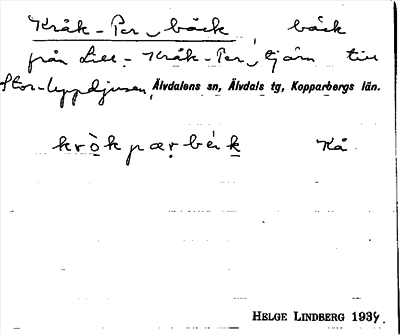 Kråk-Per-bäck, bäck
från Lill-Kråk-Per-tjärn till
Stor-, Älvdalens sn, Älvdals tg, Kopparbergs län.
krò̱k pæṛ bèk̠ Kå
HELGE LINDBERG 1934.